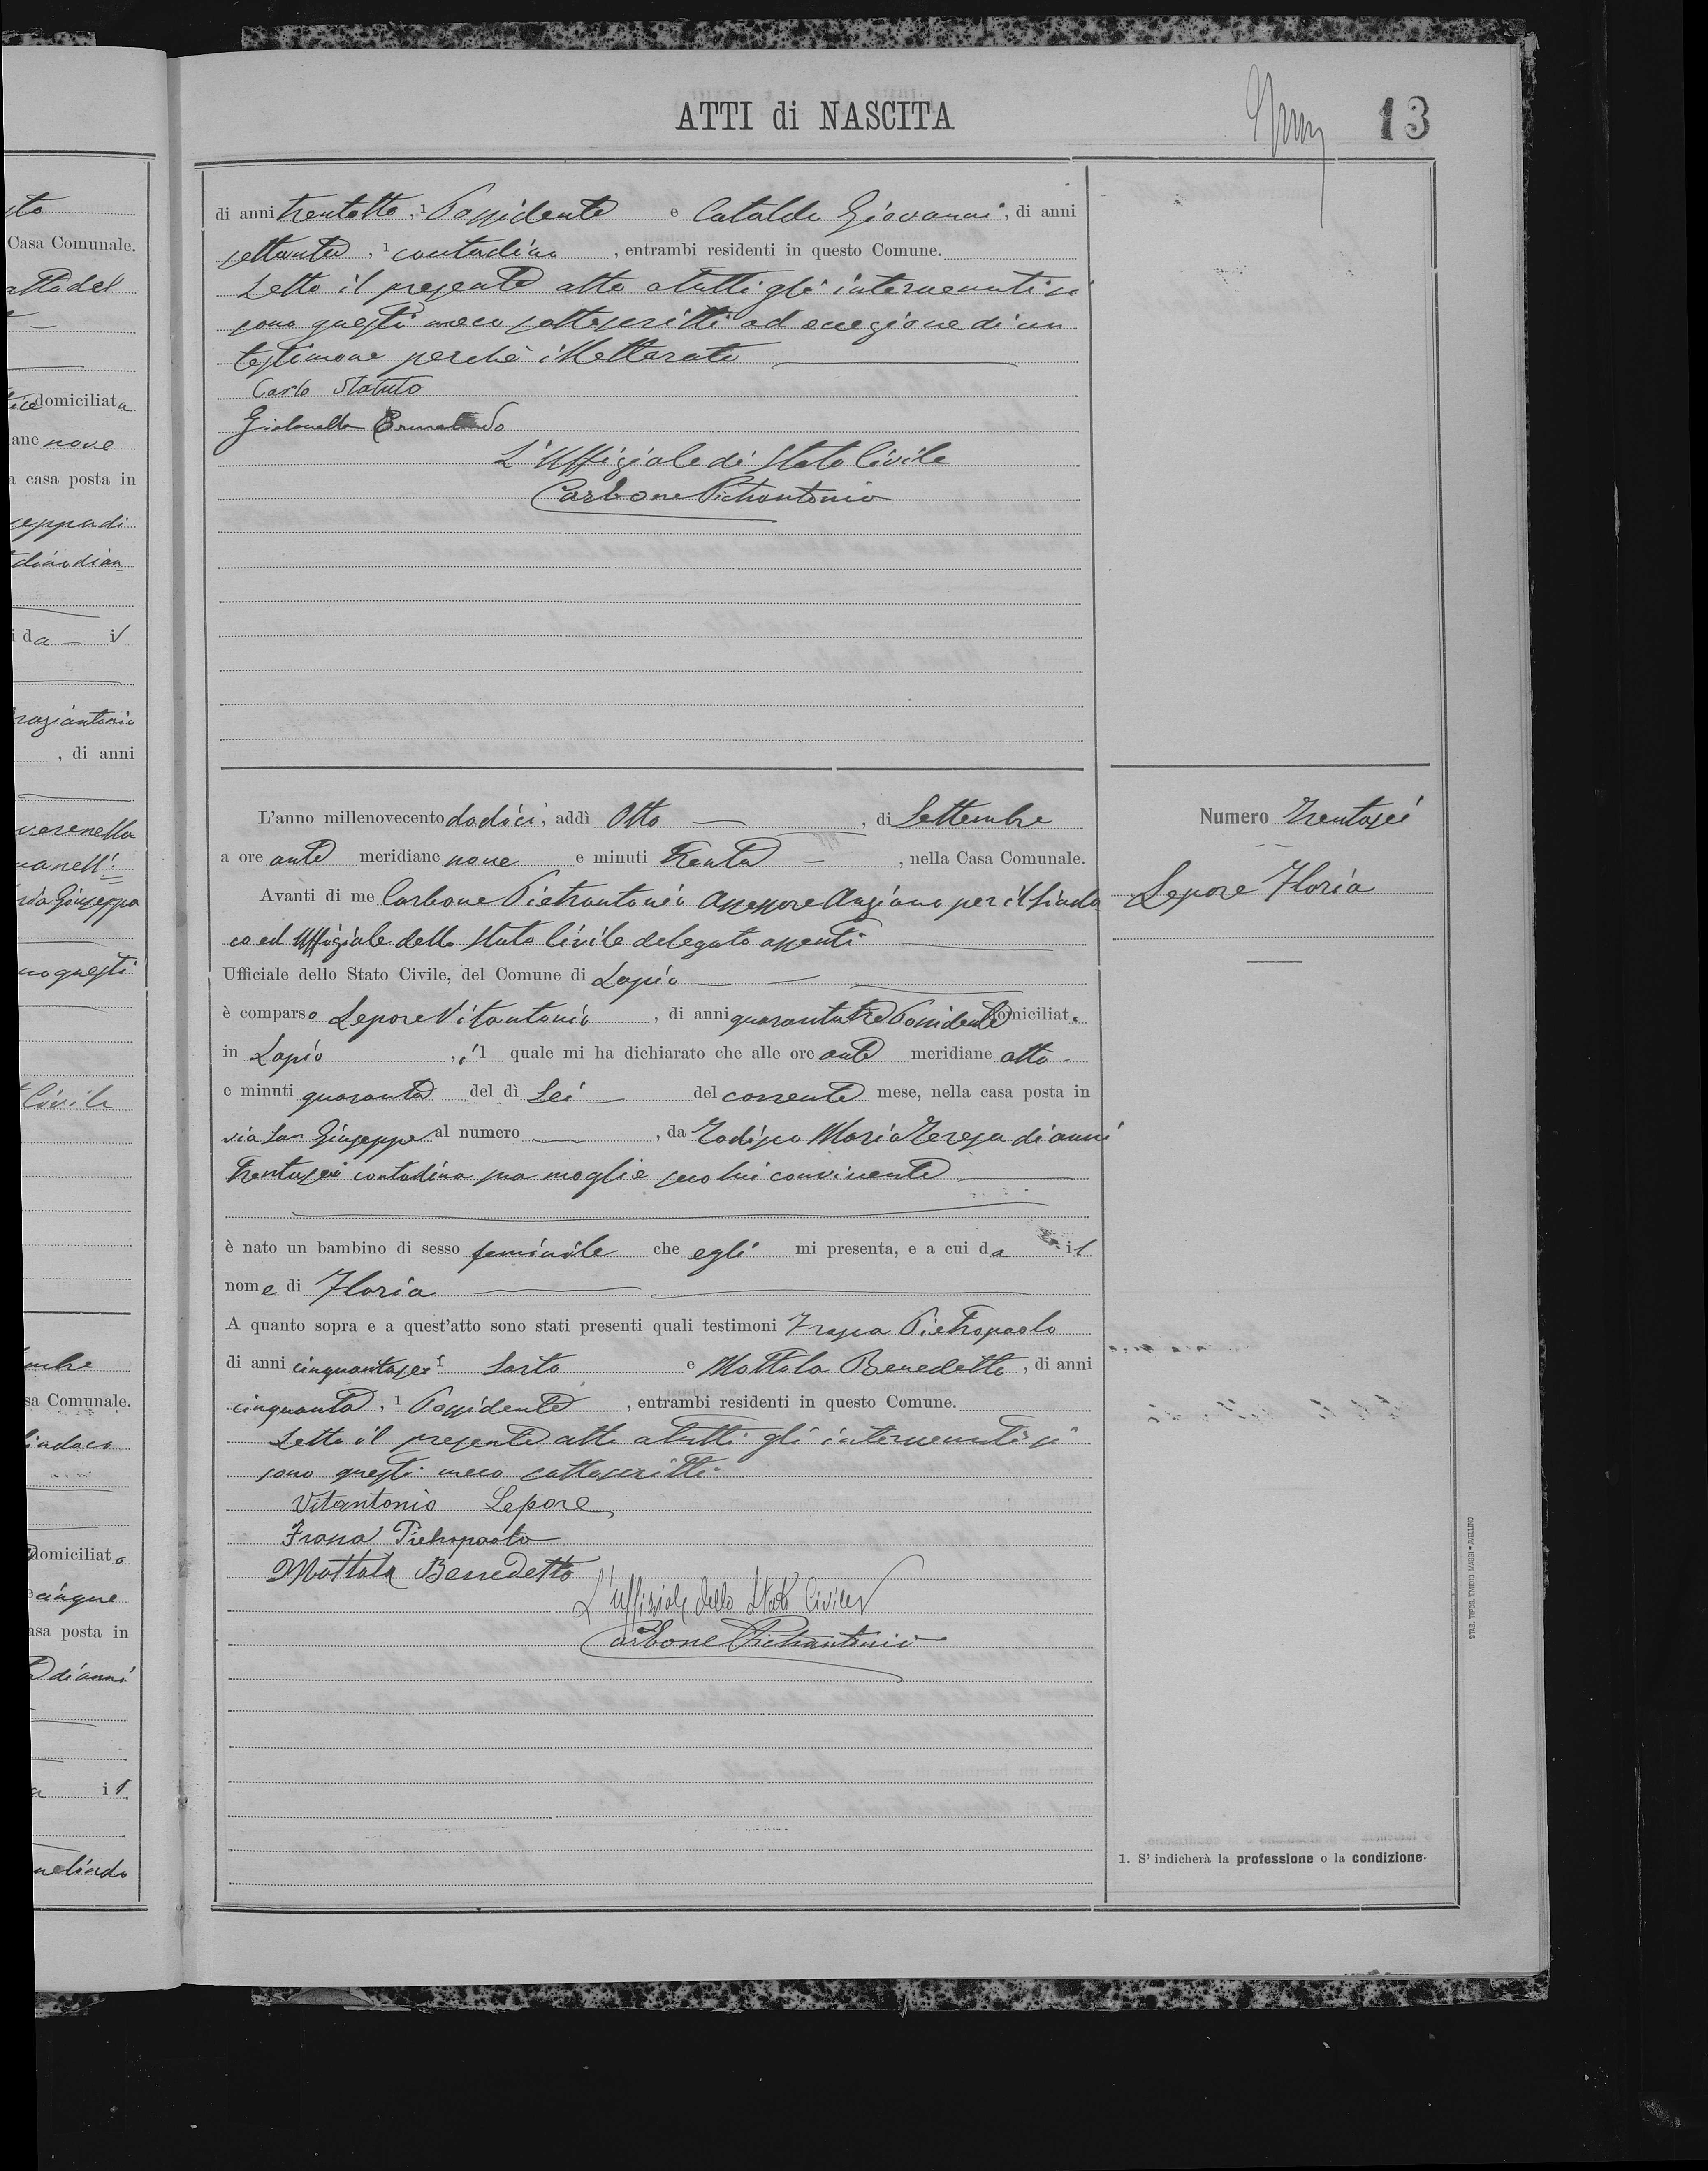 ATTI di NASCITA
13
di anni trentotto, 1 Possidente e Cataldo Giovanni, di anni
settanta, 1 contadino, entrambi residenti in questo Comune.
Letto il presente atto a tutti gli intervenuti si
sono questi meco sottoscritti ad eccezione di un
testimone perchè illetterato
Carlo Statuto
L'Uffiziale di Stato Civile
Carbone Pietrantonio
L'anno millenovecento dodici, addì Otto, di Settembre
a ore ante meridiane nove e minuti trenta, nella Casa Comunale.
Avanti di me Carbone Pietrantonio Assessore Anziano per il Sinda
co ed Uffiziale dello Stato Civile delegato assenti
Ufficiale dello Stato Civile, del Comune di Lapio
è comparso Lepore Vitantonio, di anni quarantatre Possidente domiciliato
in Lapio, il quale mi ha dichiarato che alle ore ante meridiane otto
e minuti quaranta del dì Sei del corrente mese, nella casa posta in
via San Giuseppe al numero, da Zodisco Maria Teresa di anni
trentasei contadina sua moglie seco lui convivente
è nato un bambino di sesso feminile che egli mi presenta, e a cui da il
nome di Floria
A quanto sopra e a quest'atto sono stati presenti quali testimoni Frasca Pietropaolo
di anni cinquantasei 1 Sarto e Mottola Benedetto, di anni
cinquanta, 1 Possidente, entrambi residenti in questo Comune.
Letto il presente atto a tutti gli intervenuti si
sono questi meco sottoscritti
Vitantonio Lepore
Frasca Pietropaolo
Mottola Benedetto
L'uffiziale dello Stato Civile
Carbone Pietrantonio
Numero Trentasei
Lepore Floria
1. S' indicherà la professione o la condizione.